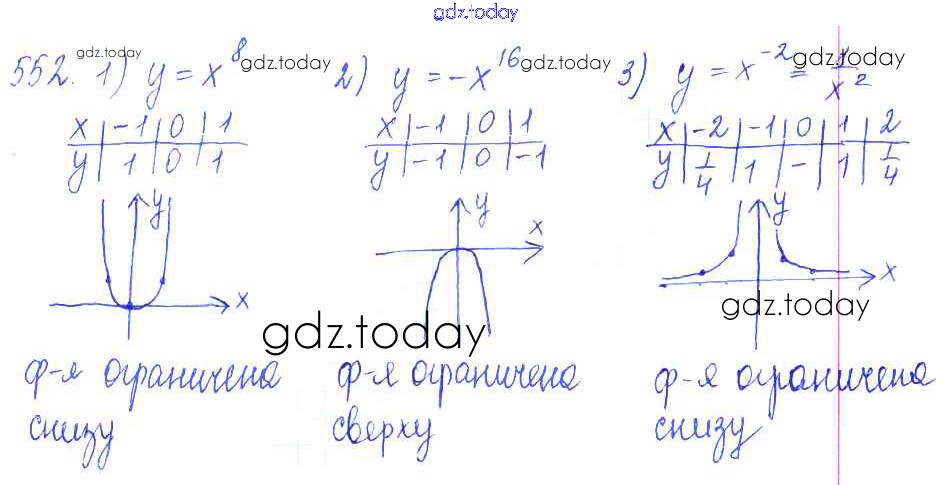 gdz.today
552. 1) y = x^8 2) y = -x^16 3) y = x^-2 = 1/x^2
gdz.today gdz.today gdz.today gdz.today
x | -1 | 0 | 1
y | 1 | 0 | 1
x | -1 | 0 | 1
y | -1 | 0 | -1
x | -2 | -1 | 0 | 1 | 2
y | 1/4 | 1 | - | 1 | 1/4
y
x
y
x
y
x
gdz.today gdz.today
ф-я ограничена
снизу
ф-я ограничена
сверху
ф-я ограничена
снизу